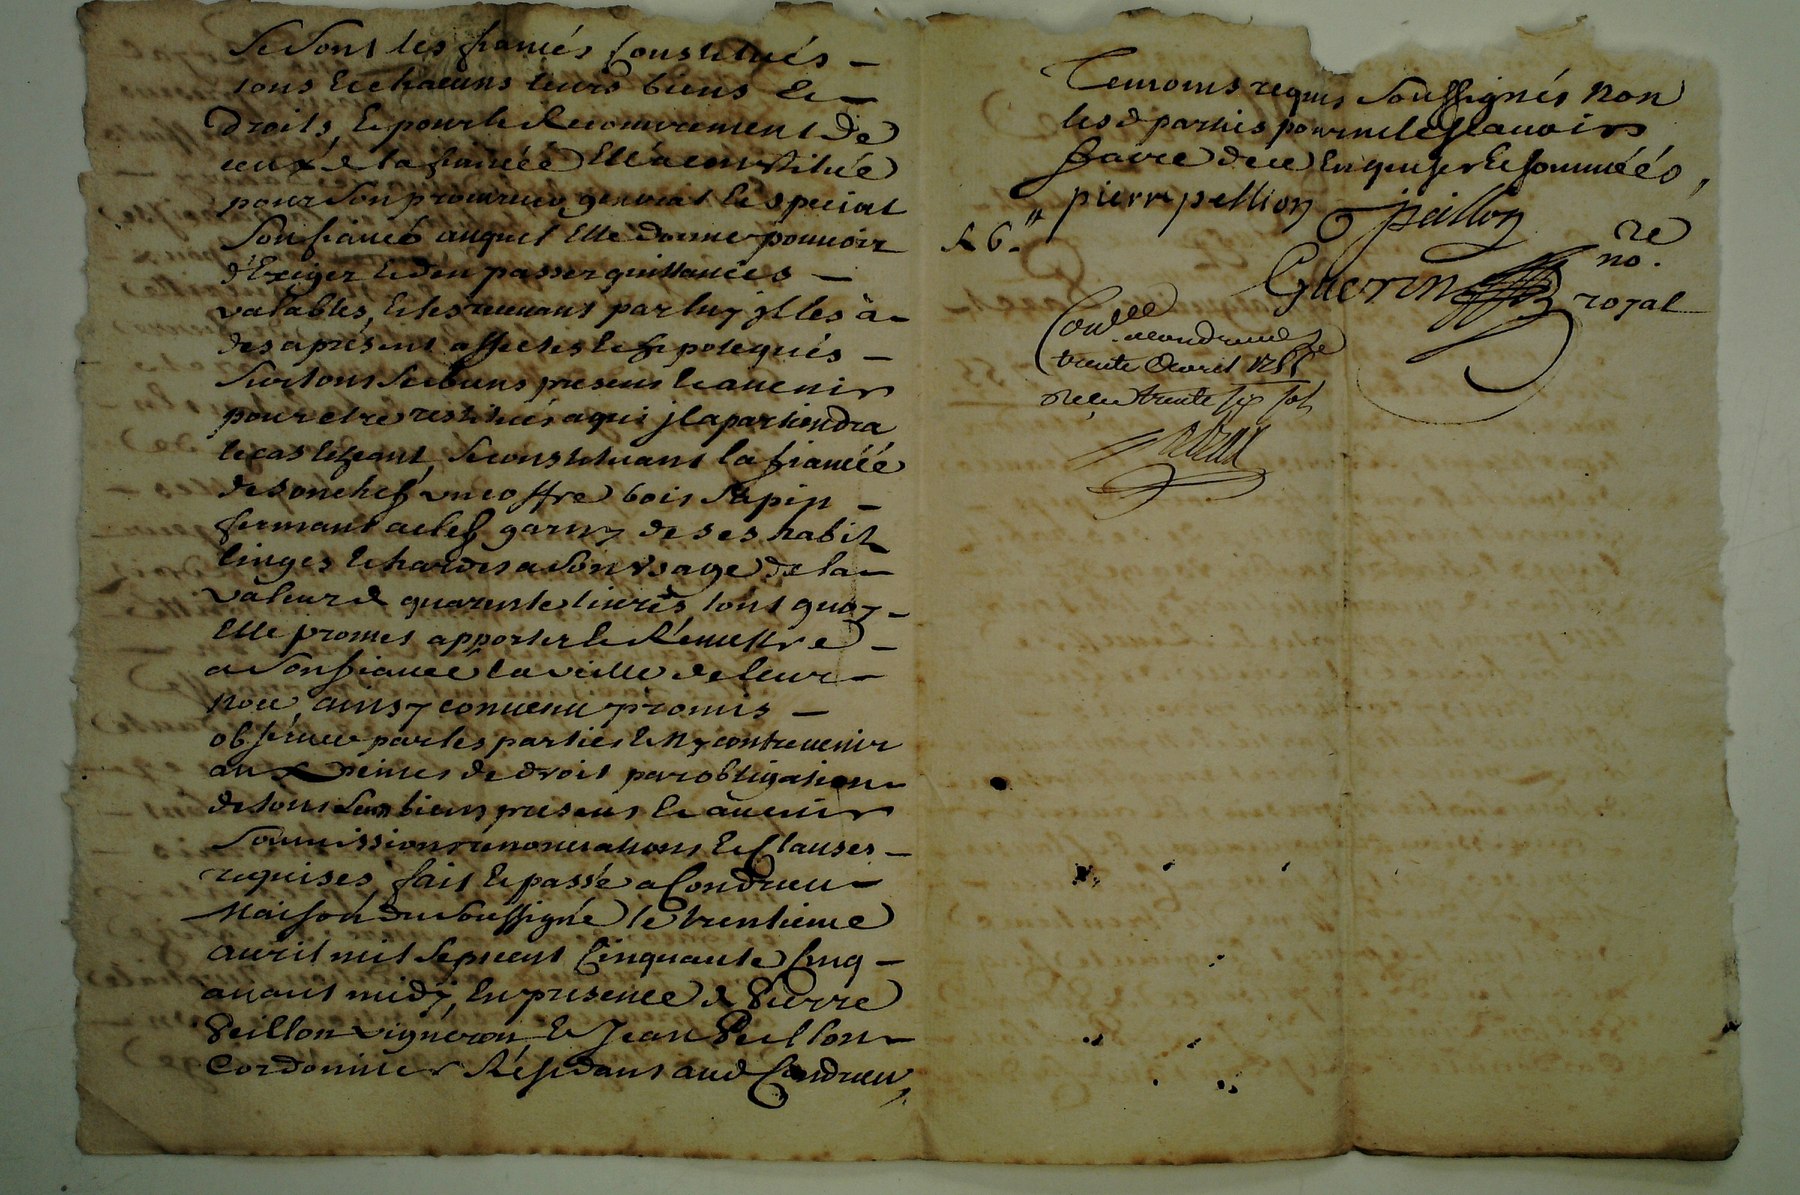 Se sont les fiancés Constitués —
tous & chacuns leurs biens & —
droits, & pour le Recouvrement de
ceux de la fiancéé Elle a constitué
pour son procureur general & special
son fiancé auquel Elle donne pouvoir
d'Exiger & d'en passer quittances —
valables, & les recevant par luy jl les à —
des àpresent affectes & hypotequés —
sur tous ses biens presens & avenir
pour etre restitués a qui jl apartiendra
le cas echeant, se constituant la fiancéé
de son chef un coffre bois sapin —
fermant a clef garny de ses habits
linges & hardes a son usage de la —
valeur de quarente livres, tout quoy —
Elle promet apporter & Remettre —
a son fiancé la veille de leur —
noce, ainsy convenu promis —
observer par les parties & n'y contrevenir
aux peines de droit par obligation
de tous leurs biens presens & avenir
soumissions renonciations & Clauses —
requises, fait & passé a Condrieu —
Maison du soussigné le trentieme
avril mil sept cent Cinquante Cinq —
avant midy, En presence de Pierre
Peillon vigneron & Jean Peillon —
Cordonnier Résidans aud Condrieu,
Temoins requis soussignés non
les d parties pour ne le sçavoir
faire de ce Enquises & sommééés,
pierre pellion J peillon
R 6.tt
Guerin no.re royal
Con.lee a condrieu le
trente avril 1755
reçu trente six sols